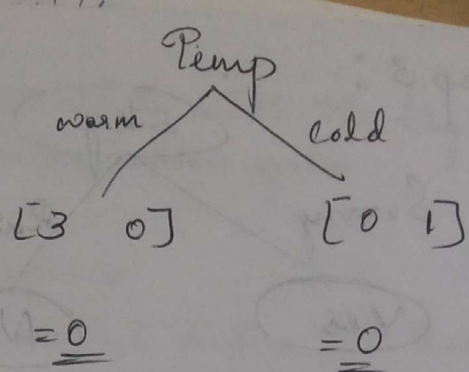 Temp
warm cold
[3 0] [0 1]
= 0 = 0